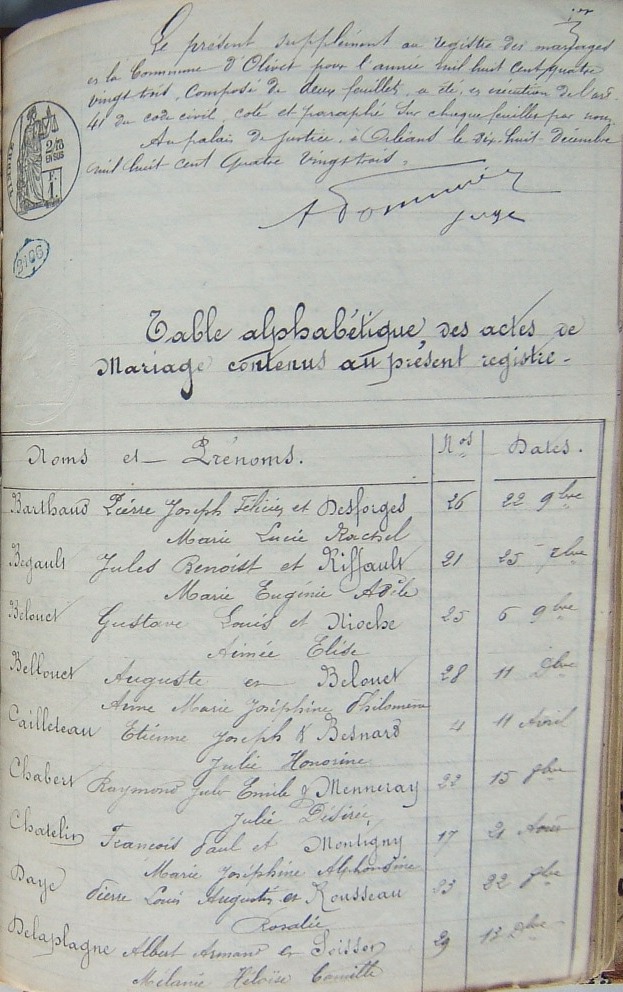 Le présent supplément au registre des mariages
de la Commune d'Olivet pour l'année mil huit cent quatre
vingt trois, composé de deux feuillets, a été, en exécution de l'art.
41 du code civil, coté et paraphé sur chaque feuillet par nous,
Au palais de justice, à Orléans le dix-huit décembre
mil huit cent quatre vingt trois.
juge
TIMBRE
2/10
EN SUS
9106
Table alphabétique des actes de
Mariage contenus au présent registre.
Noms et Prénoms. Nos Dates.
Barthaud Pierre Joseph et Desforges 26 22 9bre
Marie Lucie Rachel
Begault Jules Benoist et Riffault 21 25 7bre
Marie Eugénie Adèle
Belouet Gustave Louis et Nioche 25 6 9bre
Aimée Elise
Bellouet Auguste et Belouet 28 11 Xbre
Anne Marie Joséphine Philomène
Cailleteau Etienne Joseph & Besnard 4 11 Avril
Julie Honorine
Chabert Raymond Jules Emile & Menneray 22 15
Julie Désirée
Chatelin François Paul et Montigny 17 21 Août
Marie Joséphine Alphonsine
Daye Pierre Louis Auguste et Rousseau 23 22
Rosalie
Delaplagne Albert Armand et 29 13
Mélanie Héloïse Camille